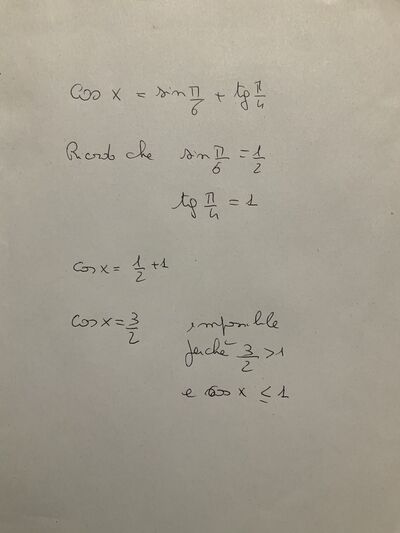 cos x = sin π/6 + tg π/4
Ricordo che sin π/6 = 1/2
tg π/4 = 1
cos x = 1/2 + 1
cos x = 3/2 impossibile
perché 3/2 > 1
e cos x ≤ 1